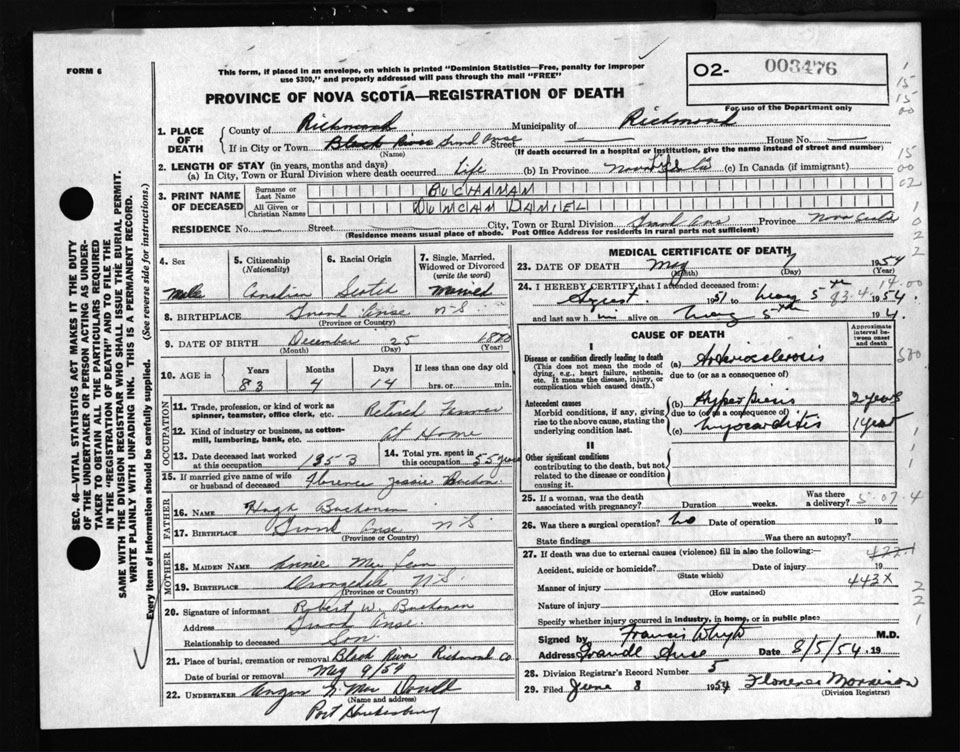 FORM 6
This form, if placed in an envelope, on which is printed "Dominion Statistics—Free, penalty for improper
use $300," and properly addressed will pass through the mail "FREE"
O2- 003476
For use of the Department only
PROVINCE OF NOVA SCOTIA—REGISTRATION OF DEATH
1. PLACE OF DEATH
County of Richmond Municipality of Richmond
If in City or Town Black River Grand Anse Street House No.
(Name) (If death occurred in a hospital or institution, give the name instead of street and number)
2. LENGTH OF STAY (in years, months and days)
(a) In City, Town or Rural Division where death occurred Life (b) In Province Life (c) In Canada (if immigrant)
3. PRINT NAME OF DECEASED
Surname or Last Name BUCHANAN
All Given or Christian Names DUNCAN DANIEL
RESIDENCE No. Street City, Town or Rural Division Grand Anse Province Nova Scotia
(Residence means usual place of abode. Post Office Address for residents in rural parts not sufficient)
4. Sex 5. Citizenship (Nationality) 6. Racial Origin 7. Single, Married, Widowed or Divorced (write the word)
Male Canadian Scotch Married
8. BIRTHPLACE Grand Anse N S
(Province or Country)
9. DATE OF BIRTH December 25 1870
(Month) (Day) (Year)
10. AGE in Years Months Days If less than one day
83 4 14 hrs. or min.
OCCUPATION
11. Trade, profession, or kind of work as spinner, teamster, office clerk, etc. Retired Farmer
12. Kind of industry or business, as cotton-mill, lumbering, bank, etc. At Home
13. Date deceased last worked at this occupation 1953
14. Total yrs. spent in this occupation 55 years
15. If married give name of wife or husband of deceased Florence Jessie
FATHER
16. Name Hugh Buchanan
17. Birthplace Grand Anse N S
(Province or Country)
MOTHER
18. Maiden Name Annie Mac Lean
19. Birthplace Orangedale N S
(Province or Country)
20. Signature of informant Robert W. Buchanan
Address Grand Anse.
Relationship to deceased Son
21. Place of burial, cremation or removal Black River Richmond Co
Date of burial or removal May 9/54
22. Undertaker Mac
(Name and address)
Port Hawkesbury
MEDICAL CERTIFICATE OF DEATH
23. DATE OF DEATH May 7 1954
(Month) (Day) (Year)
24. I HEREBY CERTIFY that I attended deceased from:
August 1951 to May 5th 1954.
and last saw him alive on May 5th 19
CAUSE OF DEATH
Approximate interval between onset and death
I
Disease or condition directly leading to death
(This does not mean the mode of dying, e.g., heart failure, asthenia, etc. It means the disease, injury, or complication which caused death.)
(a) Arteriosclerosis
due to (or as a consequence of)
Antecedent causes
Morbid conditions, if any, giving rise to the above cause, stating the underlying condition last.
(b) Hyperpiesis 2 years
due to (or as a consequence of)
(c) Myocarditis 1 year
II
Other significant conditions
contributing to the death, but not related to the disease or condition causing it.
25. If a woman, was the death associated with pregnancy? Duration weeks Was there a delivery?
26. Was there a surgical operation? No Date of operation 19
State findings Was there an autopsy?
27. If death was due to external causes (violence) fill in also the following:—
Accident, suicide or homicide? Date of injury 19
(State which)
Manner of injury 443X
(How sustained)
Nature of injury
Specify whether injury occurred in industry, in home, or in public place
Signed by Francis M.D.
Address Grande Anse Date 8/5/54 19
28. Division Registrar's Record Number 5
29. Filed June 8 1954 Florence Morrison
(Division Registrar)
SEC. 46—VITAL STATISTICS ACT MAKES IT THE DUTY
OF THE UNDERTAKER OR PERSON ACTING AS UNDERTAKER TO OBTAIN ALL THE PARTICULARS REQUIRED
IN THE "REGISTRATION OF DEATH" AND TO FILE THE
SAME WITH THE DIVISION REGISTRAR WHO SHALL ISSUE THE BURIAL PERMIT.
WRITE PLAINLY WITH UNFADING INK. THIS IS A PERMANENT RECORD.
Every item of information should be carefully supplied. (See reverse side for instructions.)